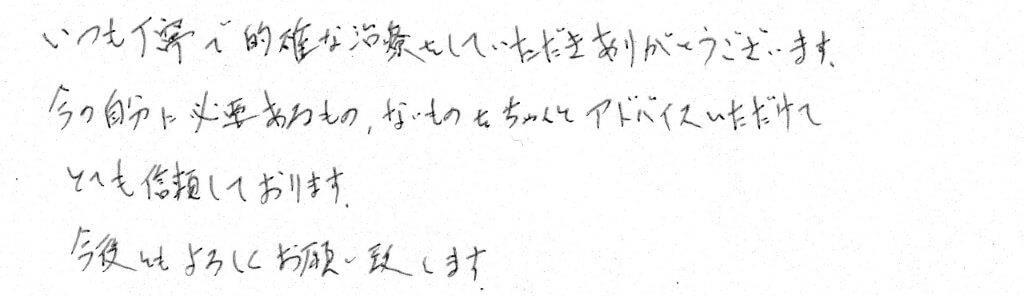 いつも丁寧で的確な治療をしていただきありがとうございます。
今の自分に必要あるもの、ないものをちゃんとアドバイスいただけて
とても信頼しております。
今後ともよろしくお願い致します。